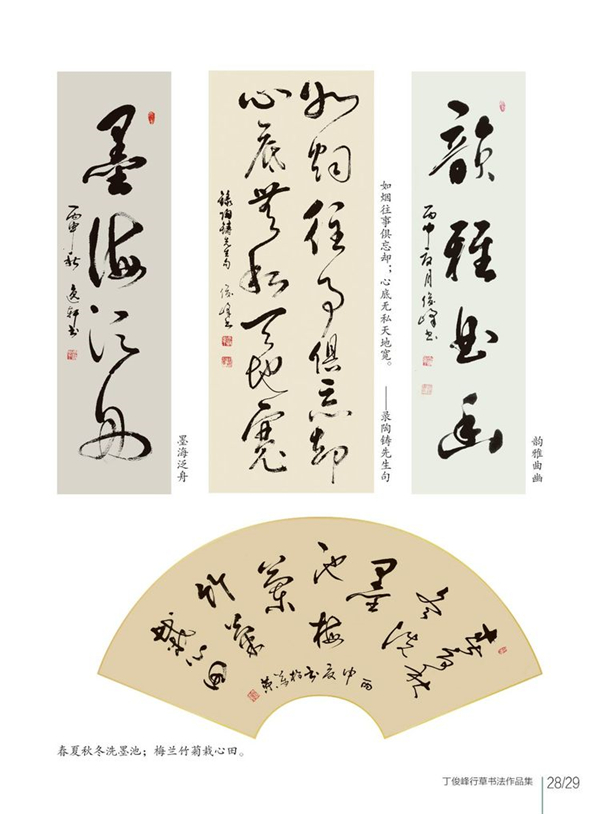 韻雅曲幽
丙申夏月俊峰书
韵雅曲幽
如烟往事俱忘却
心底无私天地宽
録陶铸先生句 俊峰书
如烟往事俱忘却；心底无私天地宽。
——录陶铸先生句
墨海泛舟
丙申秋 逸轩书
墨海泛舟
春夏秋
冬洗
墨
池梅
兰
竹菊
栽心田
丙申夏书於
春夏秋冬洗墨池；梅兰竹菊栽心田。
丁俊峰行草书法作品集
28/29